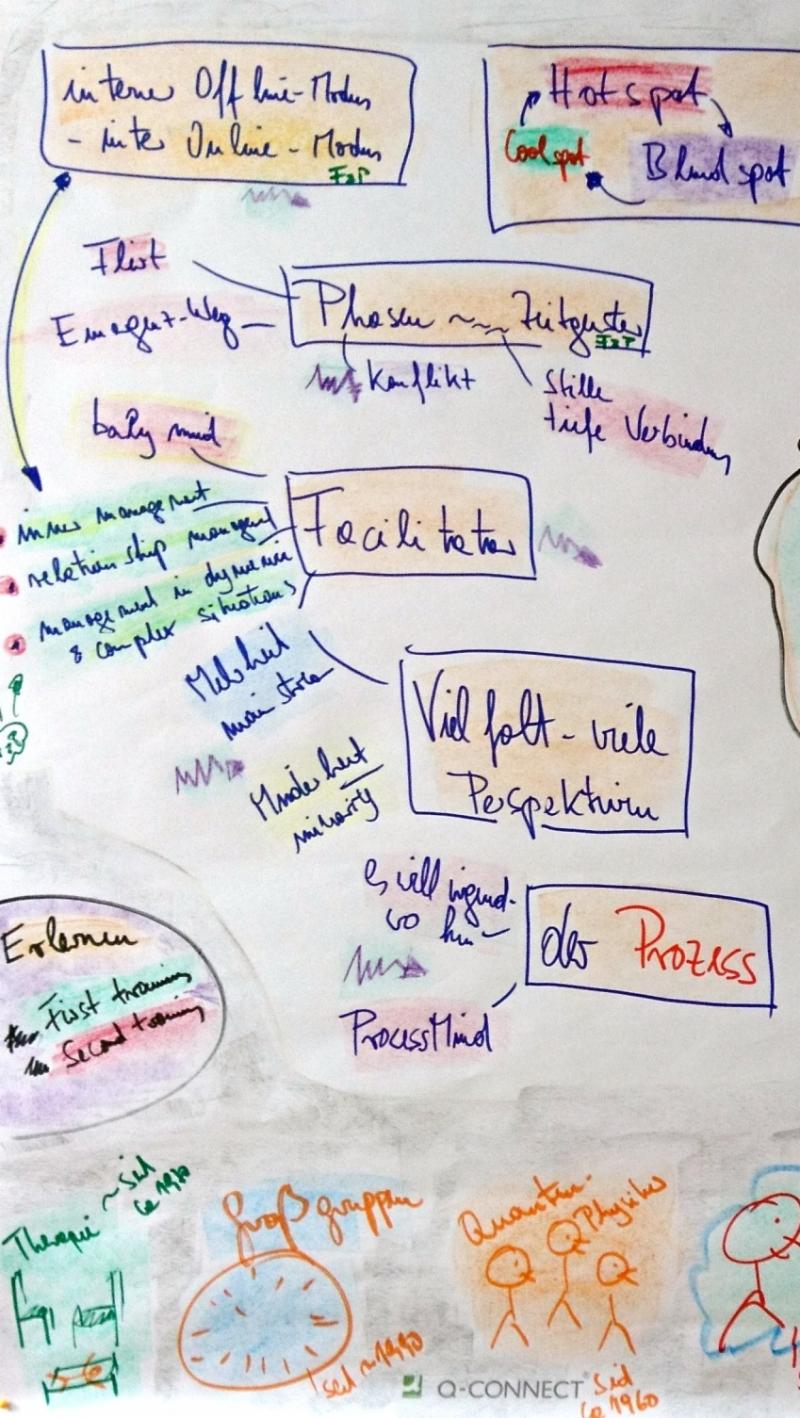 interner Offline-Modus
- inter Online-Modus
FzP
Hotspot
Coolspot
Blindspot
Flirt
Phasen ~~~ Zeitgeister
FzP
Konflikt
Stille
tiefe Verbindung
baby mind
inner management
relationship management
management in dynamic
& complex situations
Facilitator
Mehrheit
mainstream
Vielfalt - viele
Perspektiven
Minderheit
minority
Es will irgend-
wo hin -
der Prozess
ProcessMind
Erlernen
First training
Second training
Therapie ~ Seit
ca 1970
Großgruppen
seit ~ 1990
Quanten-
Physiker
Seit
ca 1960
Q-CONNECT